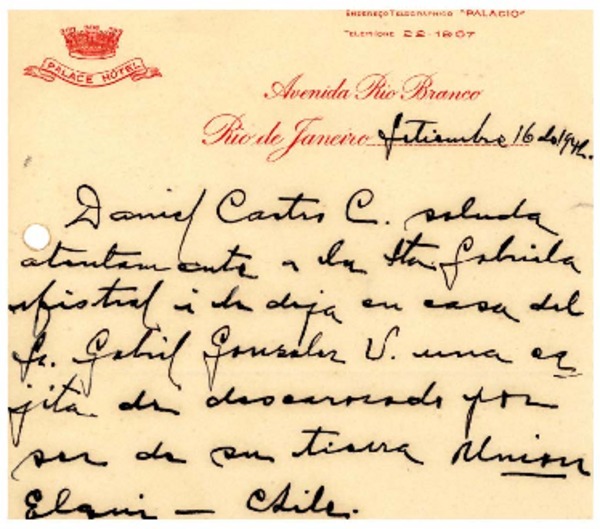 ENDEREÇO TELEGRAPHICO "PALACIO"
TELEPHONE 22-1967
PALACE HOTEL
Avenida Rio Branco
Rio de Janeiro, Setiembre 16 de 1942.
Daniel Castro C. saluda
atentamente a la Sta. Gabriela
Mistral i le deja en casa del
Sr. Gabriel Gonzalez V. una ca
jita de descarozado por
ser de su tierra Union
Elqui — Chile.